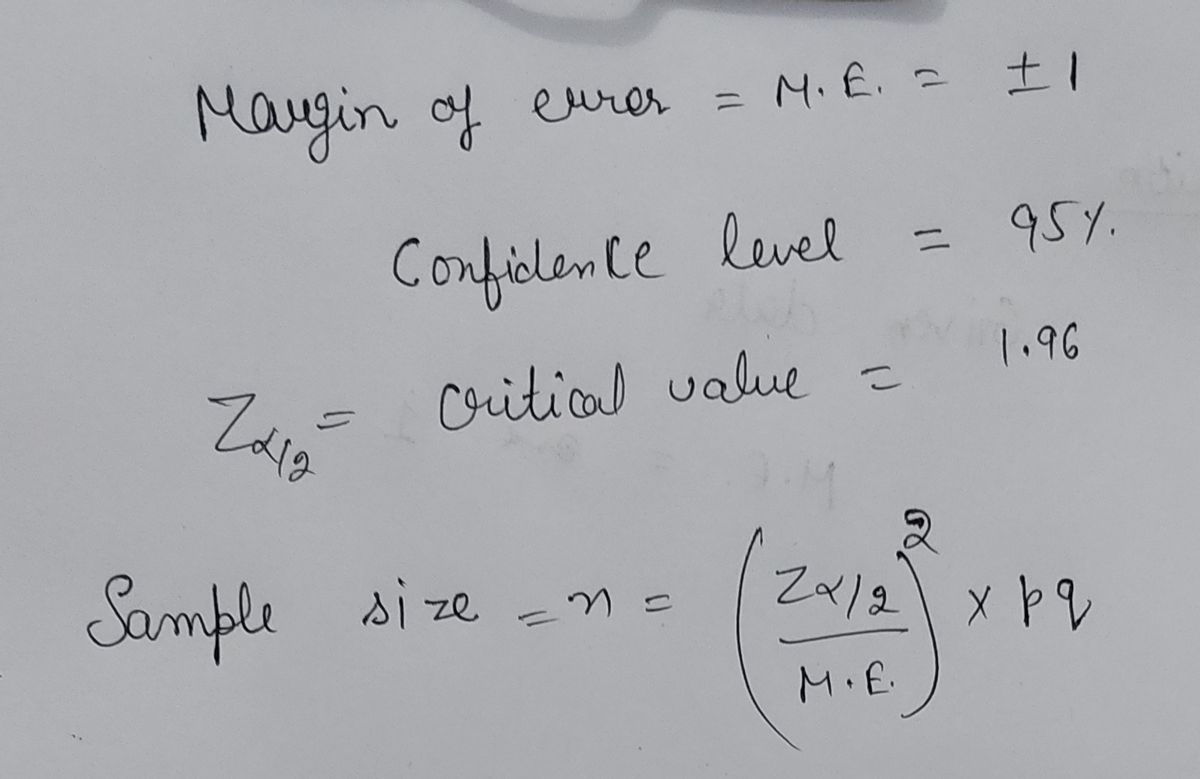 Margin of error = M.E. = ±1
Confidence level = 95%.
Zα/2 = critical value = 1.96
Sample size = n = (Zα/2 / M.E.)² × pq